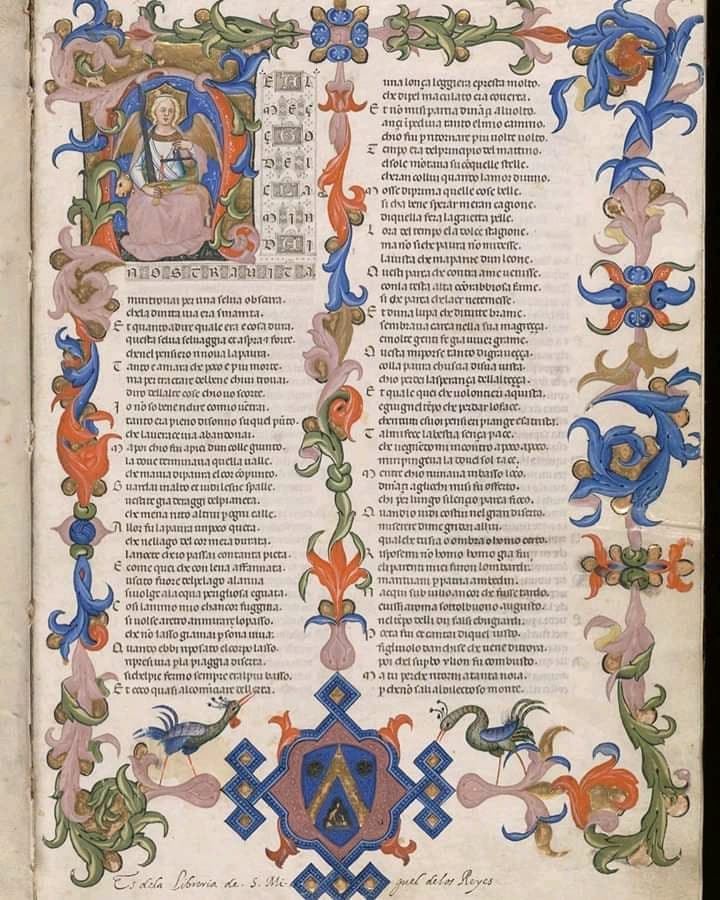 NOSTRA UITA
mi ritrouai per una selua obscura.
che la diritta uia era smarrita.
Et quanto a dire quale era e cosa dura.
questa selua seluaggia et aspra et forte.
che nel pensero rinoua la paura.
Tanto e amara che poco e piu morte.
ma per tractare del bene chi ui trouai.
diro dell altre cose chio uo scorte.
Io no so bene ridire comio uentrai.
tanto era pieno di sonno su quel punto.
che la uerace uia abandonai.
Mapoi chio fui apie dun colle giunto.
la oue terminaua quella ualle.
che mauia di paura el cor conpunto.
Guardai in alto et uidi le sue spalle.
uestite gia de raggi del pianeta.
che mena ritto altrui per ogni calle.
Allor fu la paura un poco queta.
che nel lago del cor mera durata.
la nocte chio passai con tanta pieta.
E come quei che con lena affannata.
uscito fuore del pelago alla riua
si uolge alacqua perigliosa et guata.
Cosi lanimo mio chancor fuggiua.
si uolse a retro a rimirare lo passo.
che no lasso giamai persona uiua.
Quanto ebbi riposato el corpo lasso.
ripresi uia per la piaggia diserta.
si chel pie fermo sempre era l piu basso.
Et ecco quasi al cominciare dell erta.
una lonça leggiera e presta molto.
che di pel maculato era couerta.
Et no mi si partia dinançi al uolto.
ançi pediua tanto el mio camino.
chio fui per ritornare piu uolte uolto.
Tempo era del principio del mattino.
el sole montaua su con quelle stelle.
cheran con lui quanto lamor diuino.
Mosse di prima quelle cose belle.
si cha bene sperar mera n cagione.
di quella fera la gaietta pelle.
Lora del tempo e la dolce stagione.
ma no si che paura no mi desse.
la uista che maparue dun leone.
Questi parea che contra me uenisse.
con la testa alta e con rabbiosa fame.
si che parea che laer ne temesse.
Et duna lupa che di tutte brame.
sembraua carca nella sua magreçça.
e molte genti fe gia uiuer grame.
Questa mi porse tanto di graueçça.
colla paura chuscia di sua uista.
chio perdei la sperança dell alteçça.
Et quale e quei che uolontieri aquista.
e giugnel tempo che perder lo face.
che n tutti suoi pensieri piange et satrista.
Tal mi fece la bestia sença pace.
che uegnendomi incontro a poco a poco.
mi ripingeua la doue l sol tace.
Mentre chio ruinaua in basso loco.
dinançi agliochi mi si fu offerto.
chi per lungo silençio parea fioco.
Quando uidi costui nel gran diserto.
miserere di me gridai allui.
qual che tu sia o ombra o homo certo.
Risposemi no homo homo gia fui.
e li parenti miei furon lombardi.
mantuani per patria ambedui.
Nacqui sub iulio ancor che fusse tardo.
e uissi a roma sottol buono augusto.
nel tempo delli dii falsi e bugiardi.
Poeta fui et cantai di quel iusto.
figliuolo danchise che uenne di troia.
poi chel superbo ylion fu combusto.
Ma tu perche ritorni a tanta noia.
perche no sali al dilectoso monte.
Es dela Libreria de S. Miguel delos Reyes